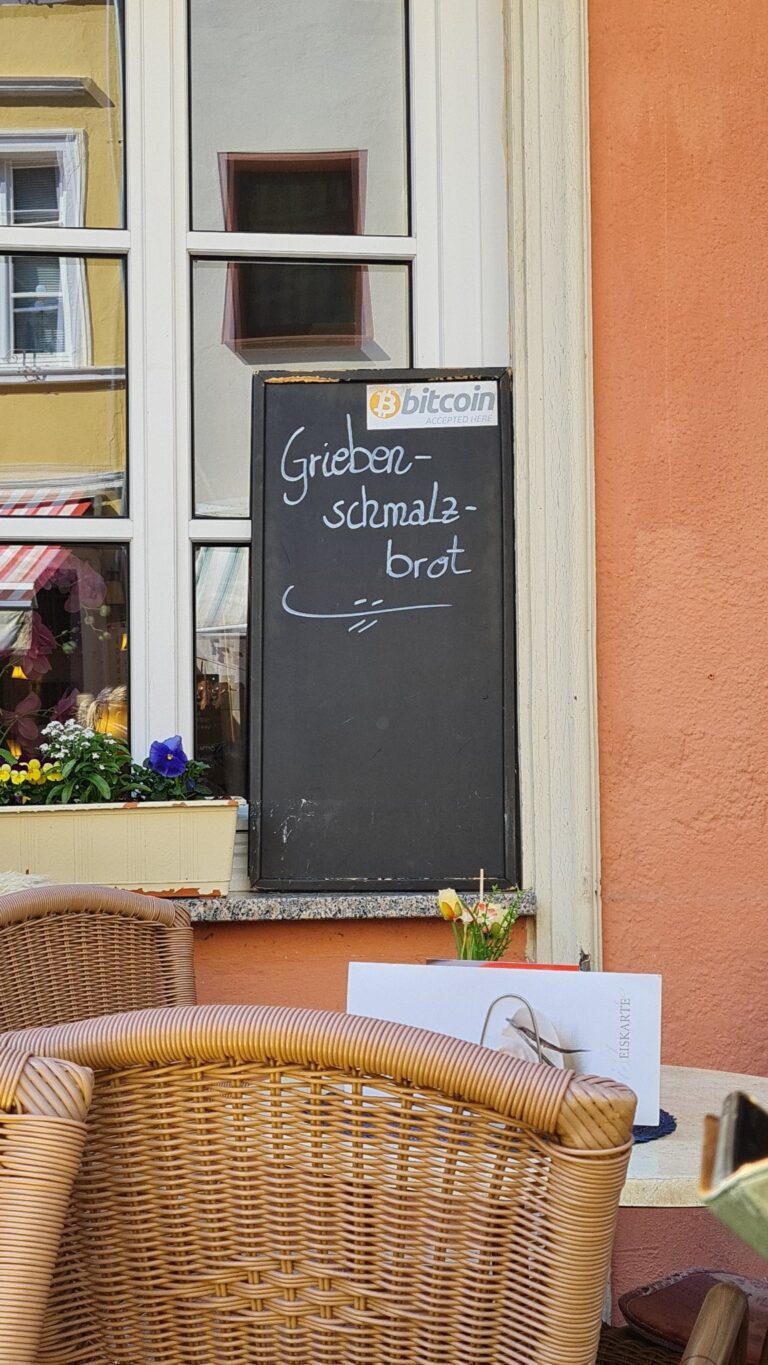 bitcoin
ACCEPTED HERE
Grieben-
schmalz-
brot
EISKARTE